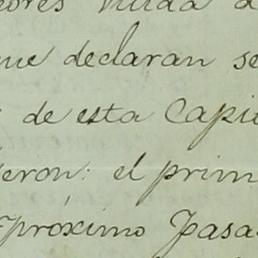 ores viuda d
que declaran se
de esta Capi
eron: el prim
próximo pasa